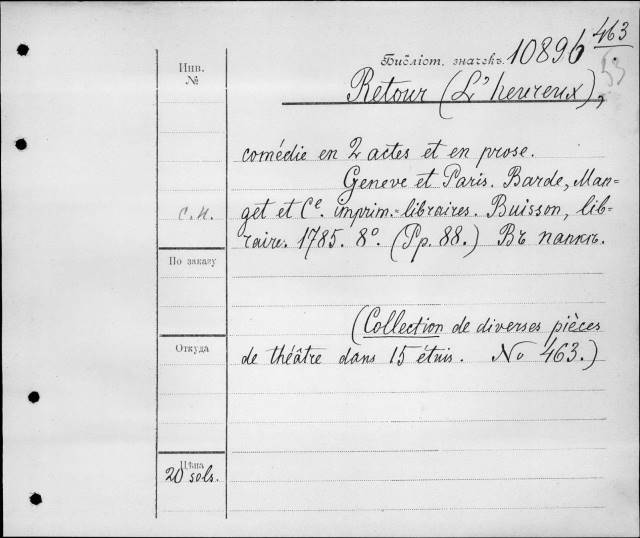 463
Библіот. значекъ. 10896
53
Инв.
№
Retour (L'heureux),
comédie en 2 actes et en prose.
Geneve et Paris. Barde, Man-
get et Ce. imprim.-libraires. Buisson, lib-
raire. 1785. 8°. (Pp. 88.) Въ папкѣ.
С.Н.
По заказу
(Collection de diverses pièces
de théâtre dans 15 étuis. No 463.)
Откуда
Цѣна
20 sols.